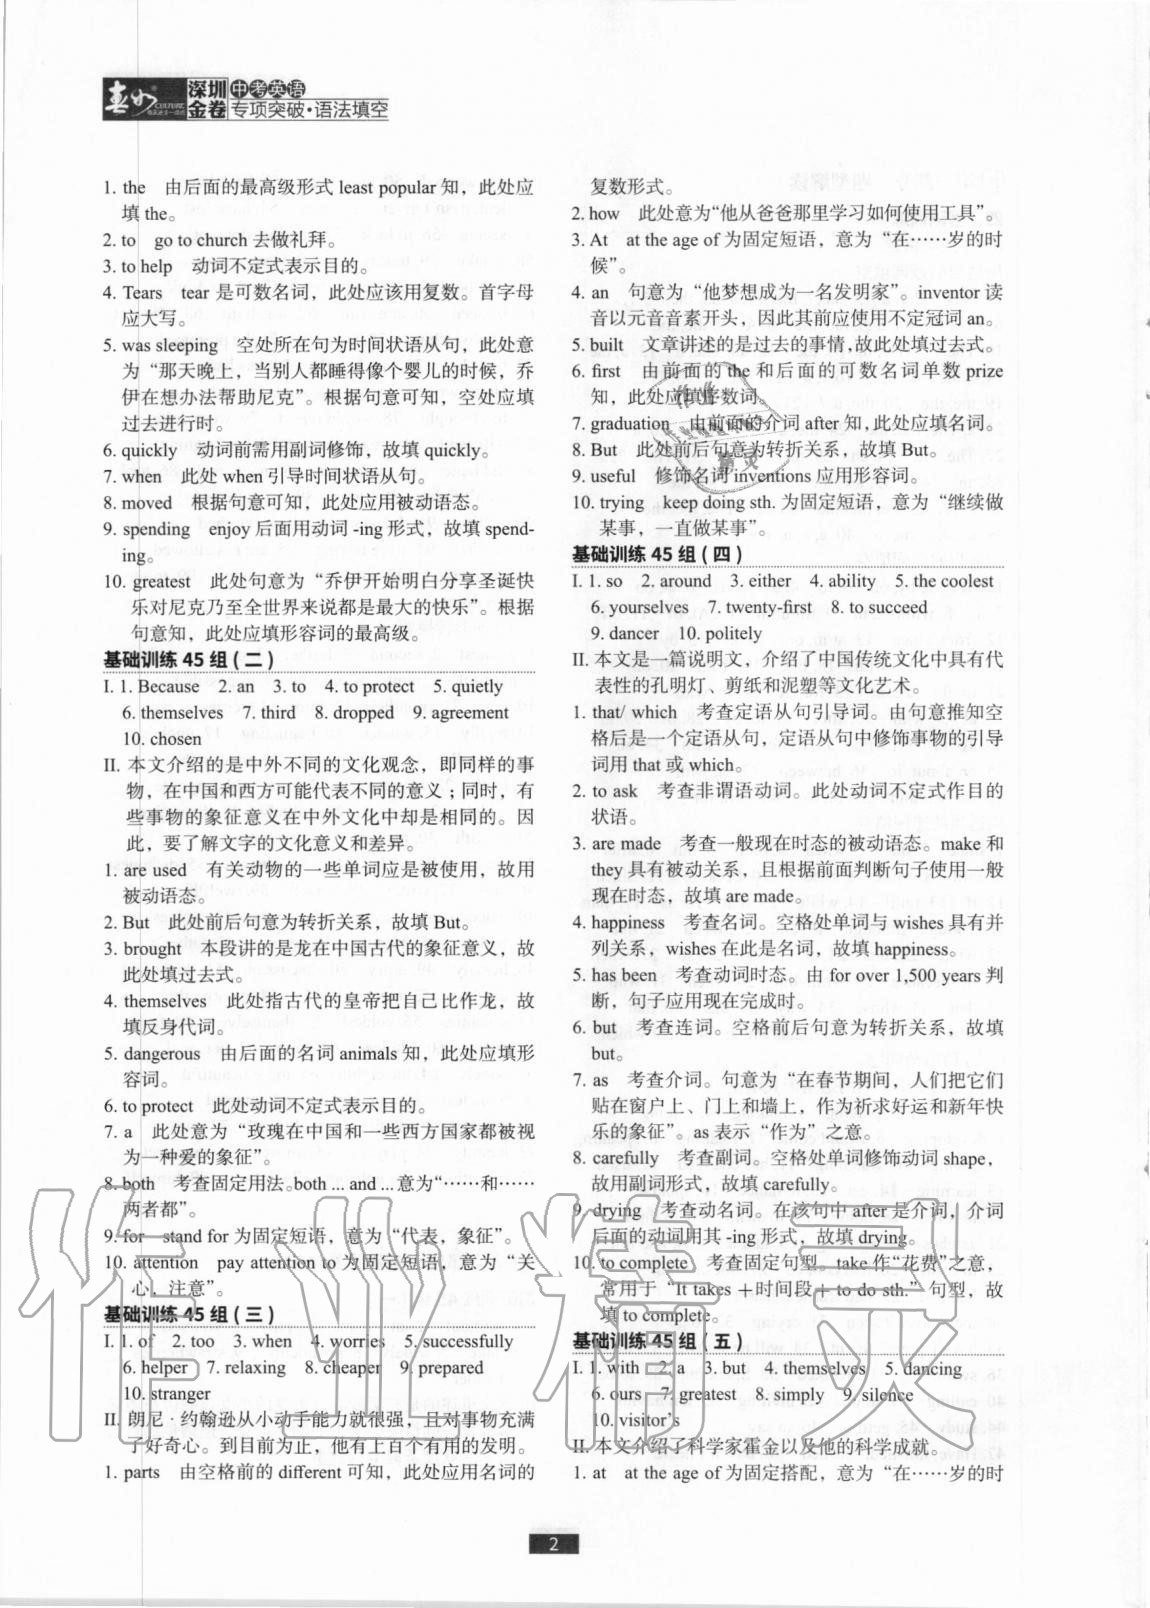 春如® CULTURE
深圳 中考英语
金卷 专项突破·语法填空
1. the 由后面的最高级形式 least popular 知，此处应
填 the。
2. to go to church 去做礼拜。
3. to help 动词不定式表示目的。
4. Tears tear 是可数名词，此处应该用复数。首字母
应大写。
5. was sleeping 空处所在句为时间状语从句，此处意
为“那天晚上，当别人都睡得像个婴儿的时候，乔
伊在想办法帮助尼克”。根据意可知，空处应填
过去进行时。
6. quickly 动词前需用副词修饰，故填 quickly。
7. when 此处 when 引导时间状语从句。
8. moved 根据句意可知，此处应用被动语态。
9. spending enjoy 后面用动词 -ing 形式，故填 spend-
ing。
10. greatest 此处句意为“乔伊开始明白分享圣诞快
乐对尼克乃至全世界来说都是最大的快乐”。根据
句意知，此处应填形容词的最高级。
基础训练 45 组 ( 二 )
I. 1. Because 2. an 3. to 4. to protect 5. quietly
6. themselves 7. third 8. dropped 9. agreement
10. chosen
II. 本文介绍的是中外不同的文化观念，即同样的事
物，在中国和西方可能代表不同的意义；同时，有
些事物的象征意义在中外文化中却是相同的。因
此，要了解文字的文化意义和差异。
1. are used 有关动物的一些单词应是被使用，故用
被动语态。
2. But 此处前后句意为转折关系，故填 But。
3. brought 本段讲的是龙在中国古代的象征意义，故
此处填过去式。
4. themselves 此处指古代的皇帝把自己比作龙，故
填反身代词。
5. dangerous 由后面的名词 animals 知，此处应填形
容词。
6. to protect 此处动词不定式表示目的。
7. a 此处意为“玫瑰在中国和一些西方国家都被视
为一种爱的象征”。
8. both 考查固定用法。both ... and ... 意为“……和……
两者都”。
9. for stand for 为固定短语，意为“代表，象征”。
10. attention pay attention to 为固定短语，意为“关
心，注意”。
基础训练 45 组 ( 三 )
I. 1. of 2. too 3. when 4. worries 5. successfully
6. helper 7. relaxing 8. cheaper 9. prepared
10. stranger
II. 朗尼·约翰逊从小动手能力就很强，且对事物充满
了好奇心。到目前为止，他有上百个有用的发明。
1. parts 由空格前的 different 可知，此处应用名词的
复数形式。
2. how 此处意为“他从爸爸那里学习如何使用工具”。
3. At at the age of 为固定短语，意为“在……岁的时
候”。
4. an 句意为“他梦想成为一名发明家”。inventor 读
音以元音音素开头，因此其前应使用不定冠词 an。
5. built 文章讲述的是过去的事情，故此处填过去式。
6. first 由前面的 the 和后面的可数名词单数 prize
知，此处应填序数词。
7. graduation 由前面的介词 after 知，此处应填名词。
8. But 此处前后句意为转折关系，故填 But。
9. useful 修饰名词 inventions 应用形容词。
10. trying keep doing sth. 为固定短语，意为“继续做
某事，一直做某事”。
基础训练 45 组 ( 四 )
I. 1. so 2. around 3. either 4. ability 5. the coolest
6. yourselves 7. twenty-first 8. to succeed
9. dancer 10. politely
II. 本文是一篇说明文，介绍了中国传统文化中具有代
表性的孔明灯、剪纸和泥塑等文化艺术。
1. that/ which 考查定语从句引导词。由句意推知空
格后是一个定语从句，定语从句中修饰事物的引导
词用 that 或 which。
2. to ask 考查非谓语动词。此处动词不定式作目的
状语。
3. are made 考查一般现在时态的被动语态。make 和
they 具有被动关系，且根据前面判断句子使用一般
现在时态，故填 are made。
4. happiness 考查名词。空格处单词与 wishes 具有并
列关系，wishes 在此是名词，故填 happiness。
5. has been 考查动词时态。由 for over 1,500 years 判
断，句子应用现在完成时。
6. but 考查连词。空格前后句意为转折关系，故填
but。
7. as 考查介词。句意为“在春节期间，人们把它们
贴在窗户上、门上和墙上，作为祈求好运和新年快
乐的象征”。as 表示“作为”之意。
8. carefully 考查副词。空格处单词修饰动词 shape，
故用副词形式，故填 carefully。
9. drying 考查动名词。在该句中 after 是介词，介词
后面的动词用其 -ing 形式，故填 drying。
10. to complete 考查固定句型。take 作“花费”之意，
常用于“It takes＋时间段＋to do sth.”句型，故
填 to complete。
基础训练 45 组 ( 五 )
I. 1. with 2. a 3. but 4. themselves 5. dancing
6. ours 7. greatest 8. simply 9. silence
10. visitor's
II. 本文介绍了科学家霍金以及他的科学成就。
1. at at the age of 为固定搭配，意为“在……岁的时
2
作业精灵